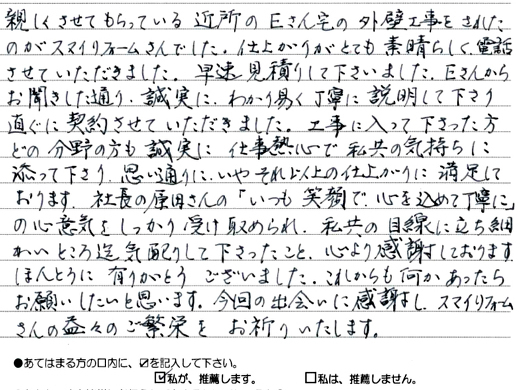 親しくさせてもらっている近所のEさん宅の外壁工事をされた
のがスマイリフォームさんでした。仕上がりがとても素晴らしく、電話
させていただきました。早速見積りして下さいました。Eさんから
お聞きした通り、誠実に、わかり易く丁寧に説明して下さり
直ぐに契約させていただきました。工事に入って下さった方
どの分野の方も誠実に仕事熱心で私共の気持ちに
添って下さり、思い通りに、いやそれ以上の仕上がりに満足して
おります。社長の原田さんの「いつも笑顔で、心を込めて丁寧に」
の心意気をしっかり受け取められ、私共の目線に立ち細
かいところ迄気配りして下さったこと、心より感謝しております
ほんとうに有りがとうございました。これからも何かあったら
お願いしたいと思います。今回の出会いに感謝し、スマイリフォーム
さんの益々のご繁栄をお祈りいたします。
●あてはまる方の口内に、☑を記入して下さい。
☑私が、推薦します。 □私は、推薦しません。